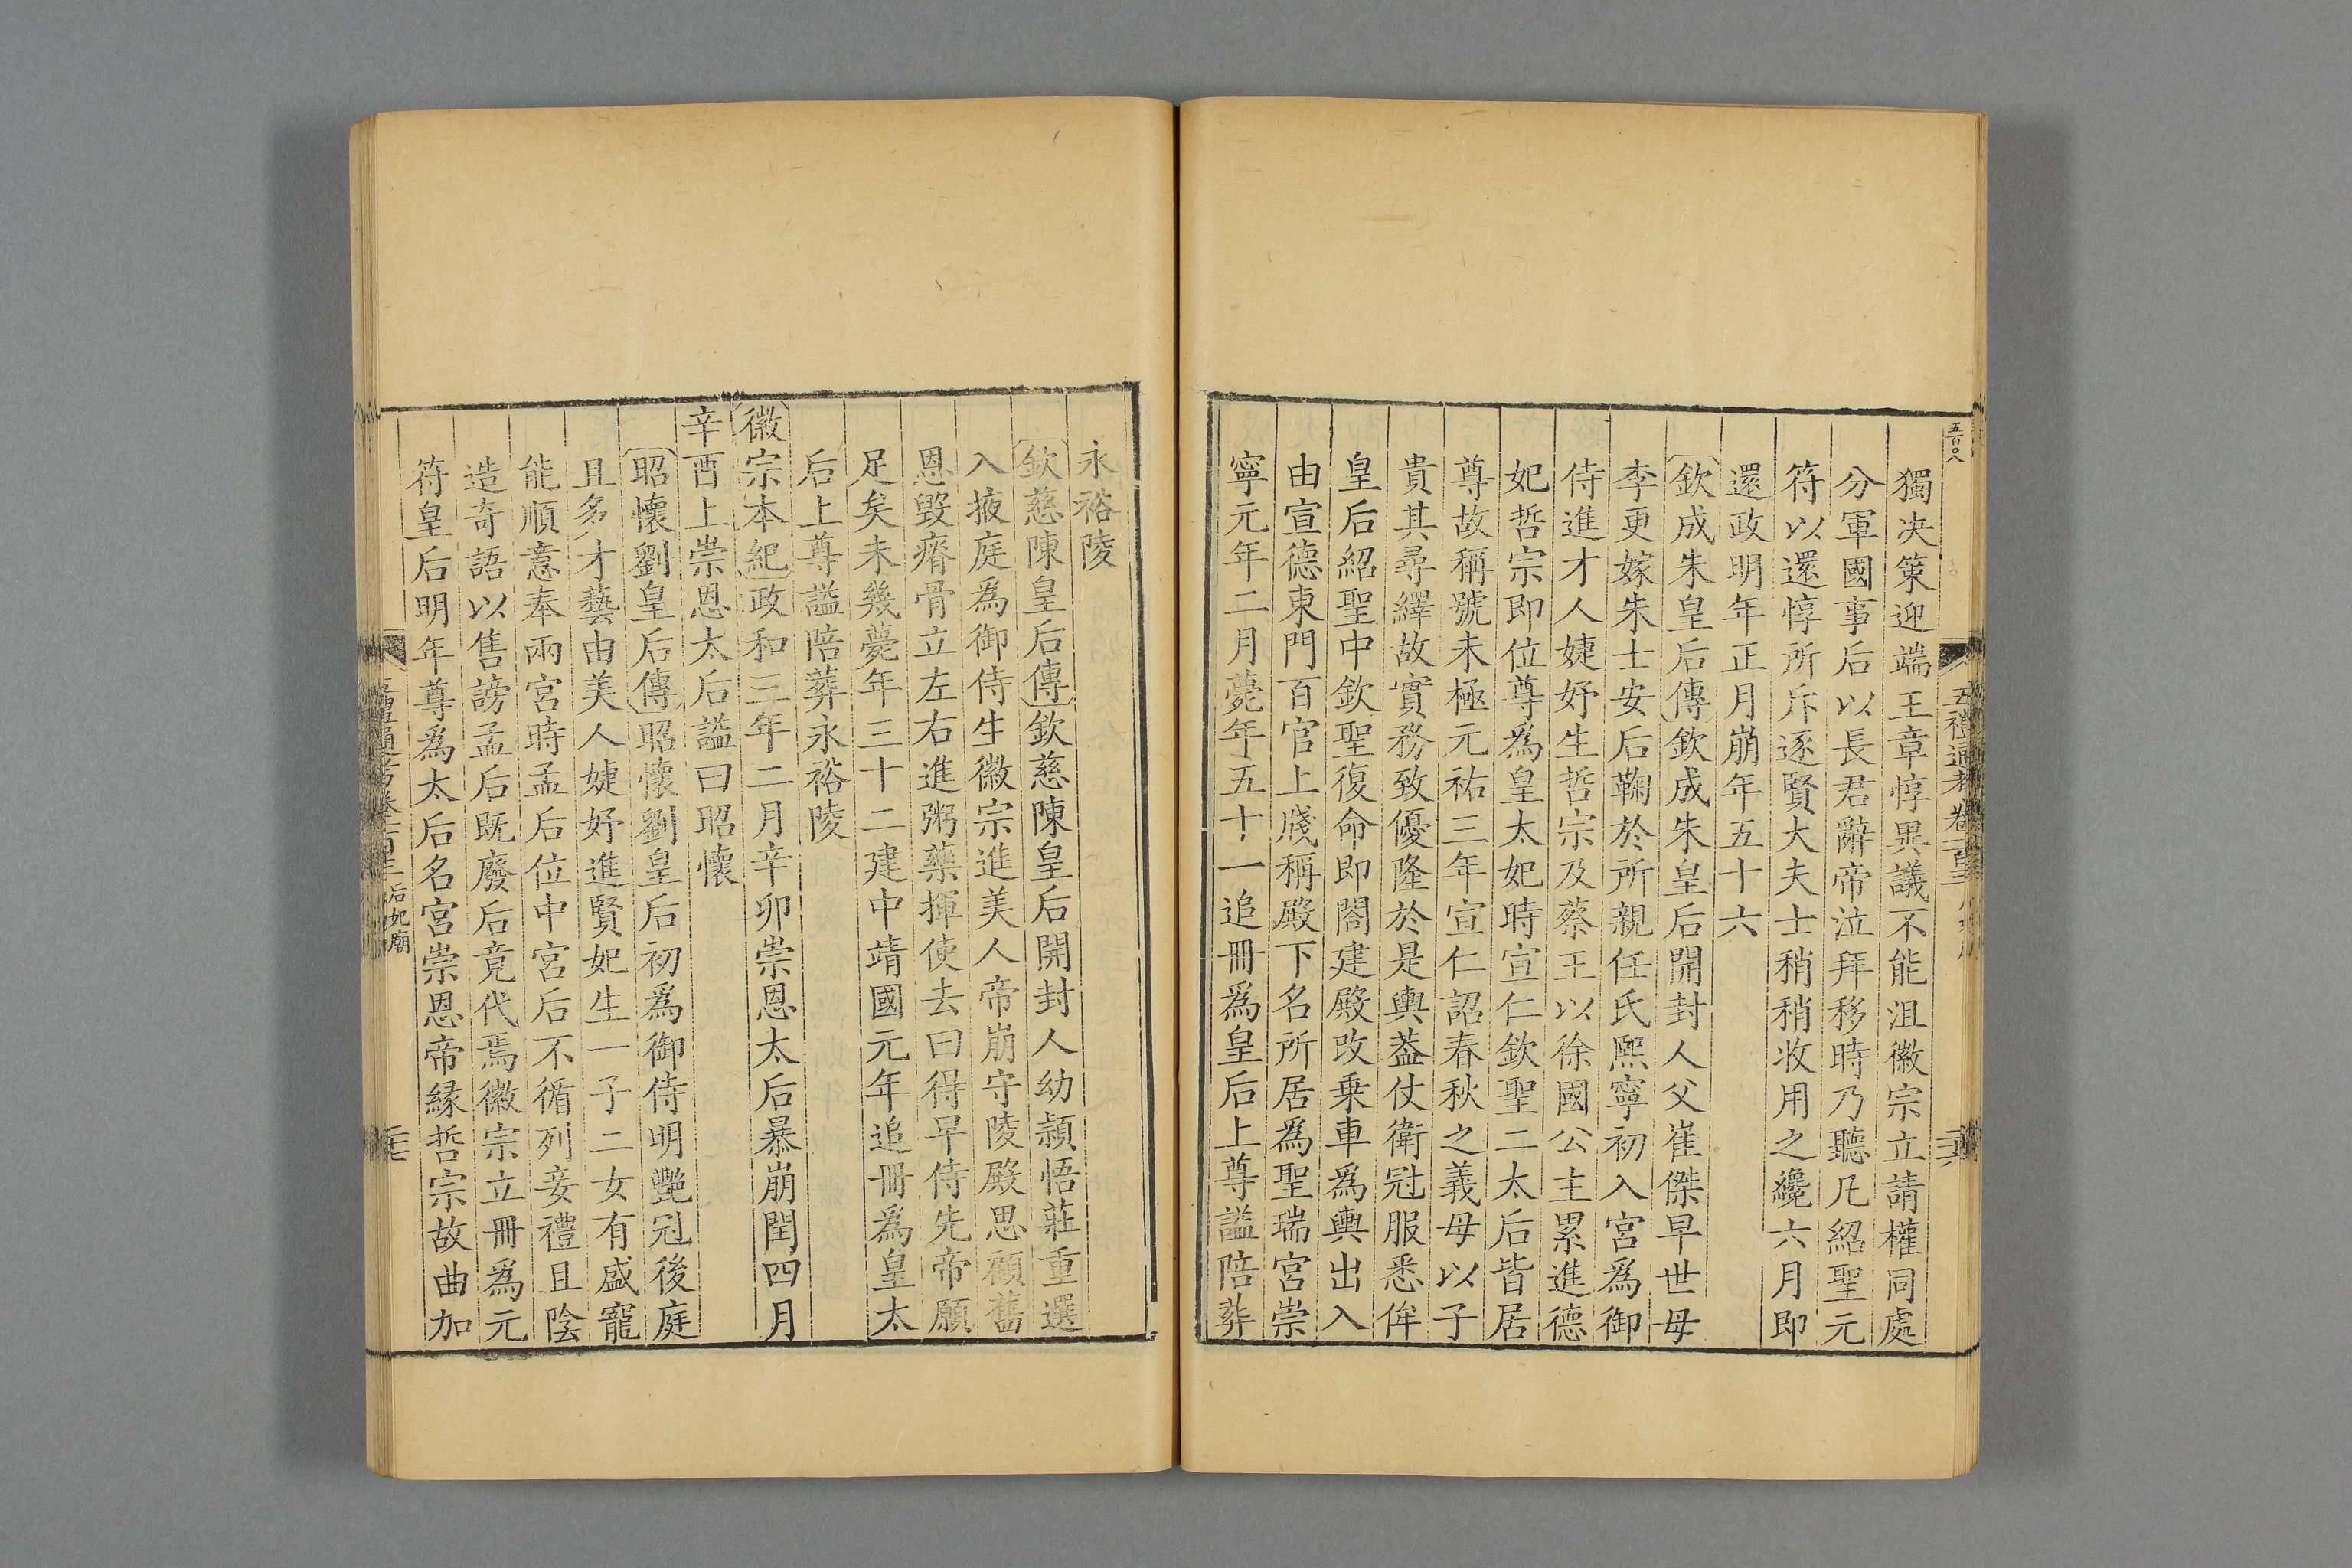 獨決策迎端王章惇異議不能沮徽宗立請權同處
分軍國事后以長君辭帝泣拜移時乃聽凡紹聖元
符以還惇所斥逐賢大夫士稍稍收用之纔六月即
還政明年正月崩年五十六
欽成朱皇后傳欽成朱皇后開封人父崔傑早世母
李更嫁朱士安后鞠於所親任氏熙寧初入宮爲御
侍進才人婕妤生哲宗及蔡王以徐國公主累進德
妃哲宗即位尊爲皇太妃時宣仁欽聖二太后皆居
尊故稱號未極元祐三年宣仁詔春秋之義母以子
貴其尋繹故實務致優隆於是輿蓋仗衛冠服悉侔
皇后紹聖中欽聖復命即閤建殿改乗車爲輿出入
由宣德東門百官上牋稱殿下名所居為聖瑞宮崇
寧元年二月薨年五十一追冊爲皇后上尊謚陪葬
永裕陵
欽慈陳皇后傳欽慈陳皇后開封人幼頴悟莊重選
入掖庭為御侍生徽宗進美人帝崩守陵殿思顧舊
恩毀瘠骨立左右進粥藥揮使去曰得早侍先帝願
足矣未幾薨年三十二建中靖國元年追冊爲皇太
后上尊謚陪葬永裕陵
徽宗本紀政和三年二月辛卯崇恩太后暴崩閏四月
辛酉上崇恩太后謚曰昭懷
昭懷劉皇后傳昭懷劉皇后初爲御侍明艷冠後庭
且多才藝由美人婕妤進賢妃生一子二女有盛寵
能順意奉兩宮時孟后位中宮后不循列妾禮且陰
造奇語以售謗孟后既廢后竟代焉徽宗立冊爲元
符皇后明年尊爲太后名宮崇恩帝縁哲宗故曲加
五禮通考卷一百三
后妃廟